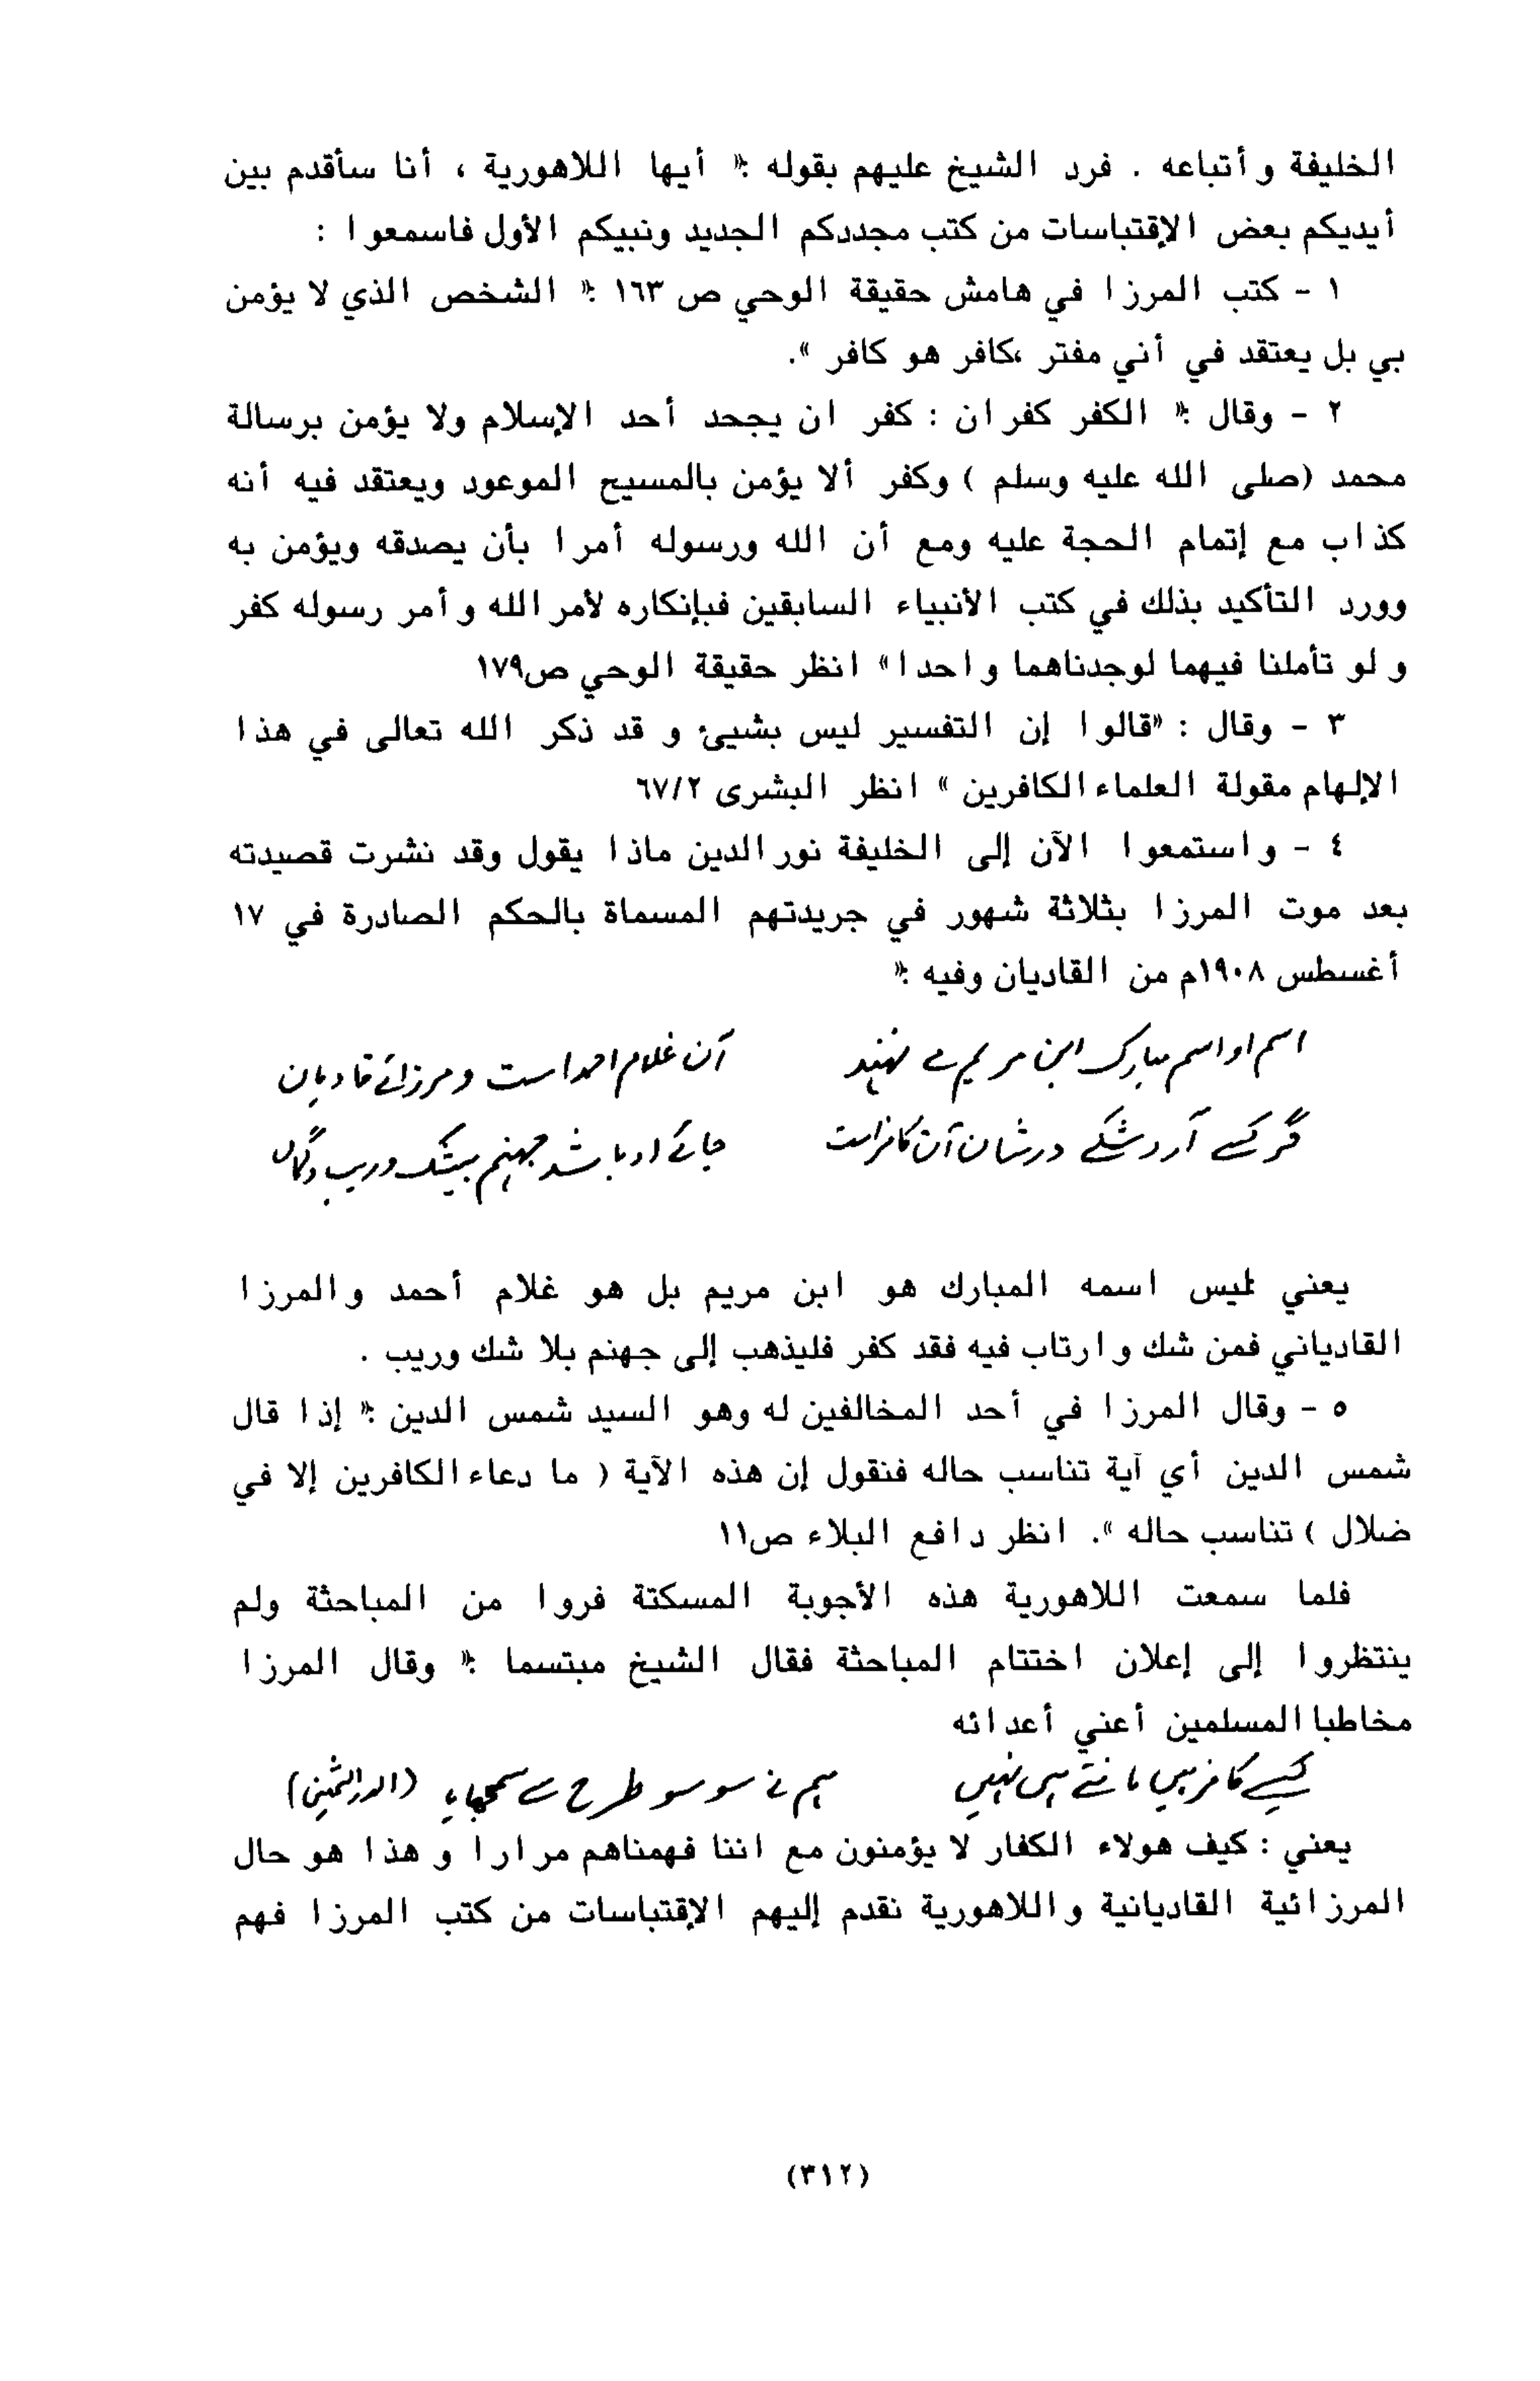 الخليفة وأتباعه . فرد الشيخ عليهم بقوله :« أيها اللاهورية ، أنا سأقدم بين
أيديكم بعض الإقتباسات من كتب مجددكم الجديد ونبيكم الأول فاسمعوا :
١ - كتب المرزا في هامش حقيقة الوحي ص ١٦٣ :« الشخص الذي لا يؤمن
بي بل يعتقد في أني مفتر ،كافر هو كافر ».
٢ - وقال :« الكفر كفران : كفر ان يجحد أحد الإسلام ولا يؤمن برسالة
محمد (صلى الله عليه وسلم ) وكفر ألا يؤمن بالمسيح الموعود ويعتقد فيه أنه
كذاب مع إتمام الحجة عليه ومع أن الله ورسوله أمرا بأن يصدقه ويؤمن به
وورد التأكيد بذلك في كتب الأنبياء السابقين فبإنكاره لأمر الله وأمر رسوله كفر
و لو تأملنا فيهما لوجدناهما واحدا» انظر حقيقة الوحي ص١٧٩
٣ - وقال : «قالوا إن التفسير ليس بشيئ و قد ذكر الله تعالى في هذا
الإلهام مقولة العلماء الكافرين » انظر البشرى ٦٧/٢
٤ - واستمعوا الآن إلى الخليفة نور الدين ماذا يقول وقد نشرت قصيدته
بعد موت المرزا بثلاثة شهور في جريدتهم المسماة بالحكم الصادرة في ١٧
أغسطس ١٩٠٨م من القاديان وفيه :«
اسم او اسم مبارک ابن مریم مے نہند آن غلام احمد است و مرزائے قادیان
گر کسے آرد شکے در شان آن کافر است جائے او باشد جہنم بیشک و ریب و گماں
يعني ليس اسمه المبارك هو ابن مريم بل هو غلام أحمد والمرزا
القادياني فمن شك وارتاب فيه فقد كفر فليذهب إلى جهنم بلا شك وريب .
٥ - وقال المرزا في أحد المخالفين له وهو السيد شمس الدين :« إذا قال
شمس الدين أي آية تناسب حاله فنقول إن هذه الآية ( ما دعاء الكافرين إلا في
ضلال ) تناسب حاله ». انظر دافع البلاء ص١١
فلما سمعت اللاهورية هذه الأجوبة المسكتة فروا من المباحثة ولم
ينتظروا إلى إعلان اختتام المباحثة فقال الشيخ مبتسما :« وقال المرزا
مخاطبا المسلمين أعني أعدائه
کیسے کافر ہیں مانتے ہی نہیں ہم نے سو سو طرح سے سمجھایا (الدر الثمین)
يعني : كيف هولاء الكفار لا يؤمنون مع اننا فهمناهم مرارا و هذا هو حال
المرزائية القاديانية واللاهورية نقدم إليهم الإقتباسات من كتب المرزا فهم
(٣١٢)